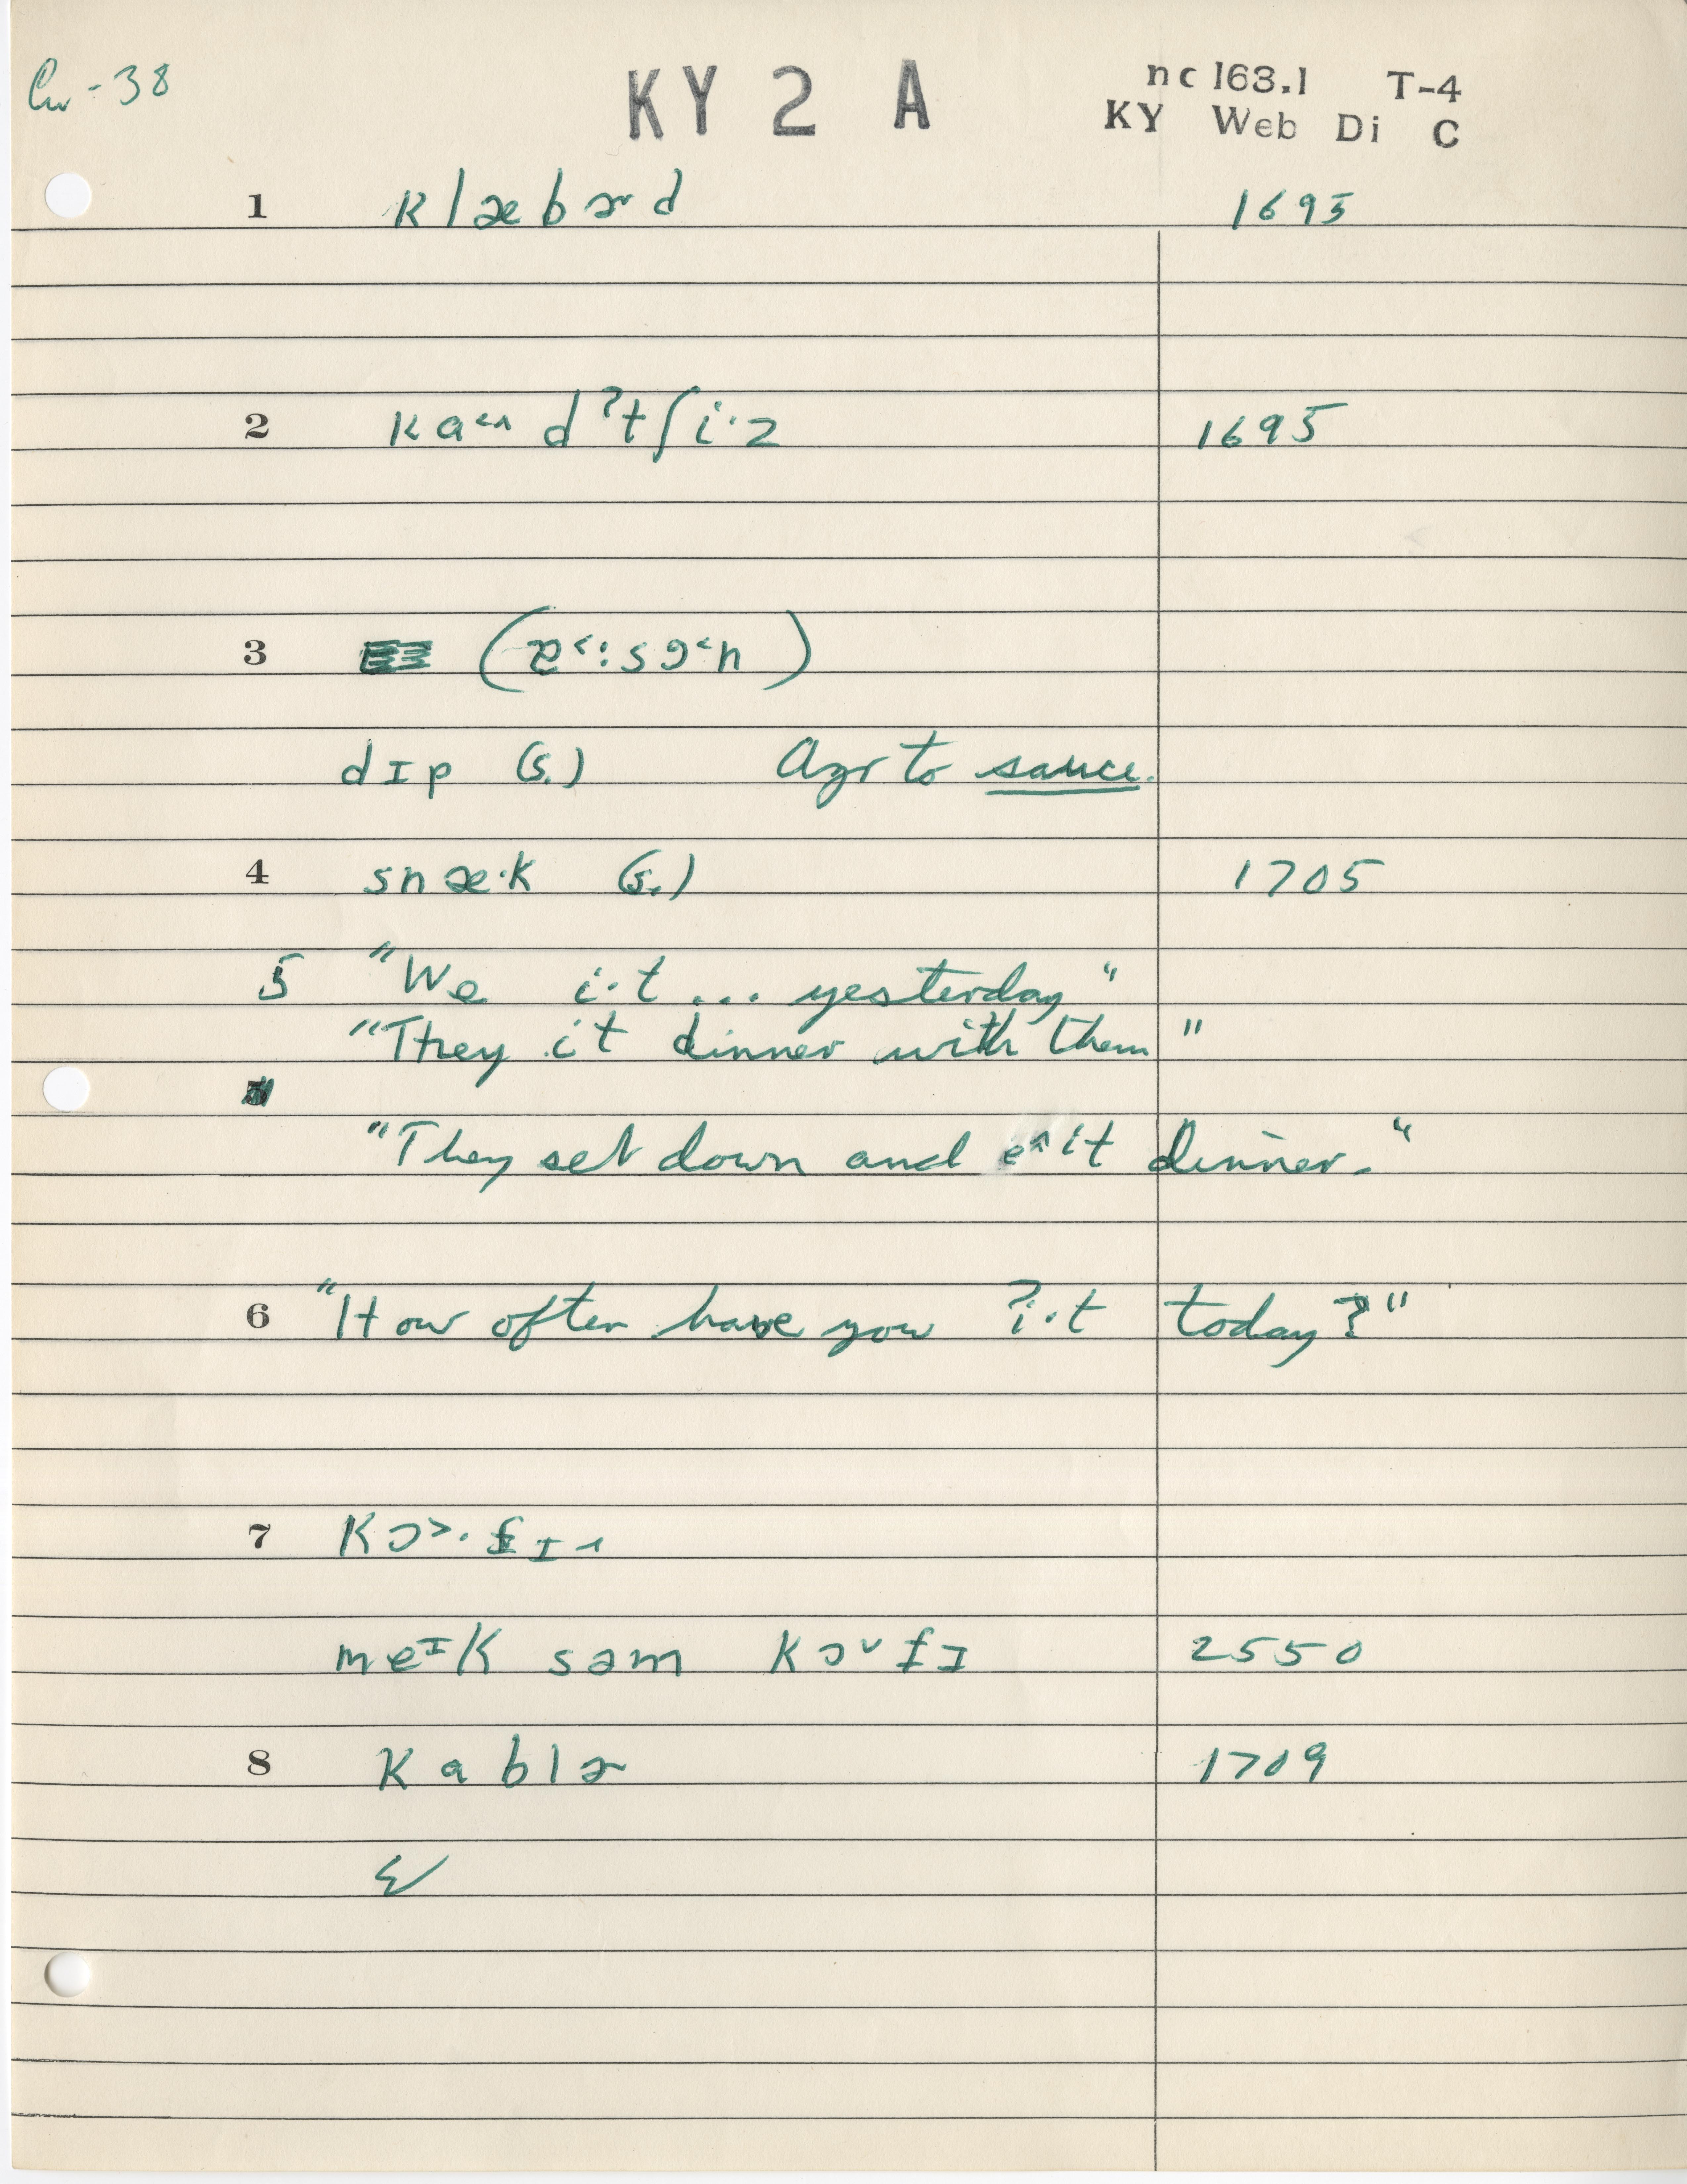 Cw - 38
KY 2 A
nc 163.1 T-4
KY Web Di C
1 klæbɚd 1695
2 ka˂˄ dˀtʃi·z 1695
3
dɪp (s.) Agr to sauce.
4 snæ·k (s.) 1705
5 "We i·t ... yesterday"
"They it dinner with them"
5
"They set down and e˄it dinner."
6 "How often have you ʔi·t today?"
7 kɔ˃·fɪ˧
meɪk səm kɔ˅fɪ 2550
8 kablɚ 1709